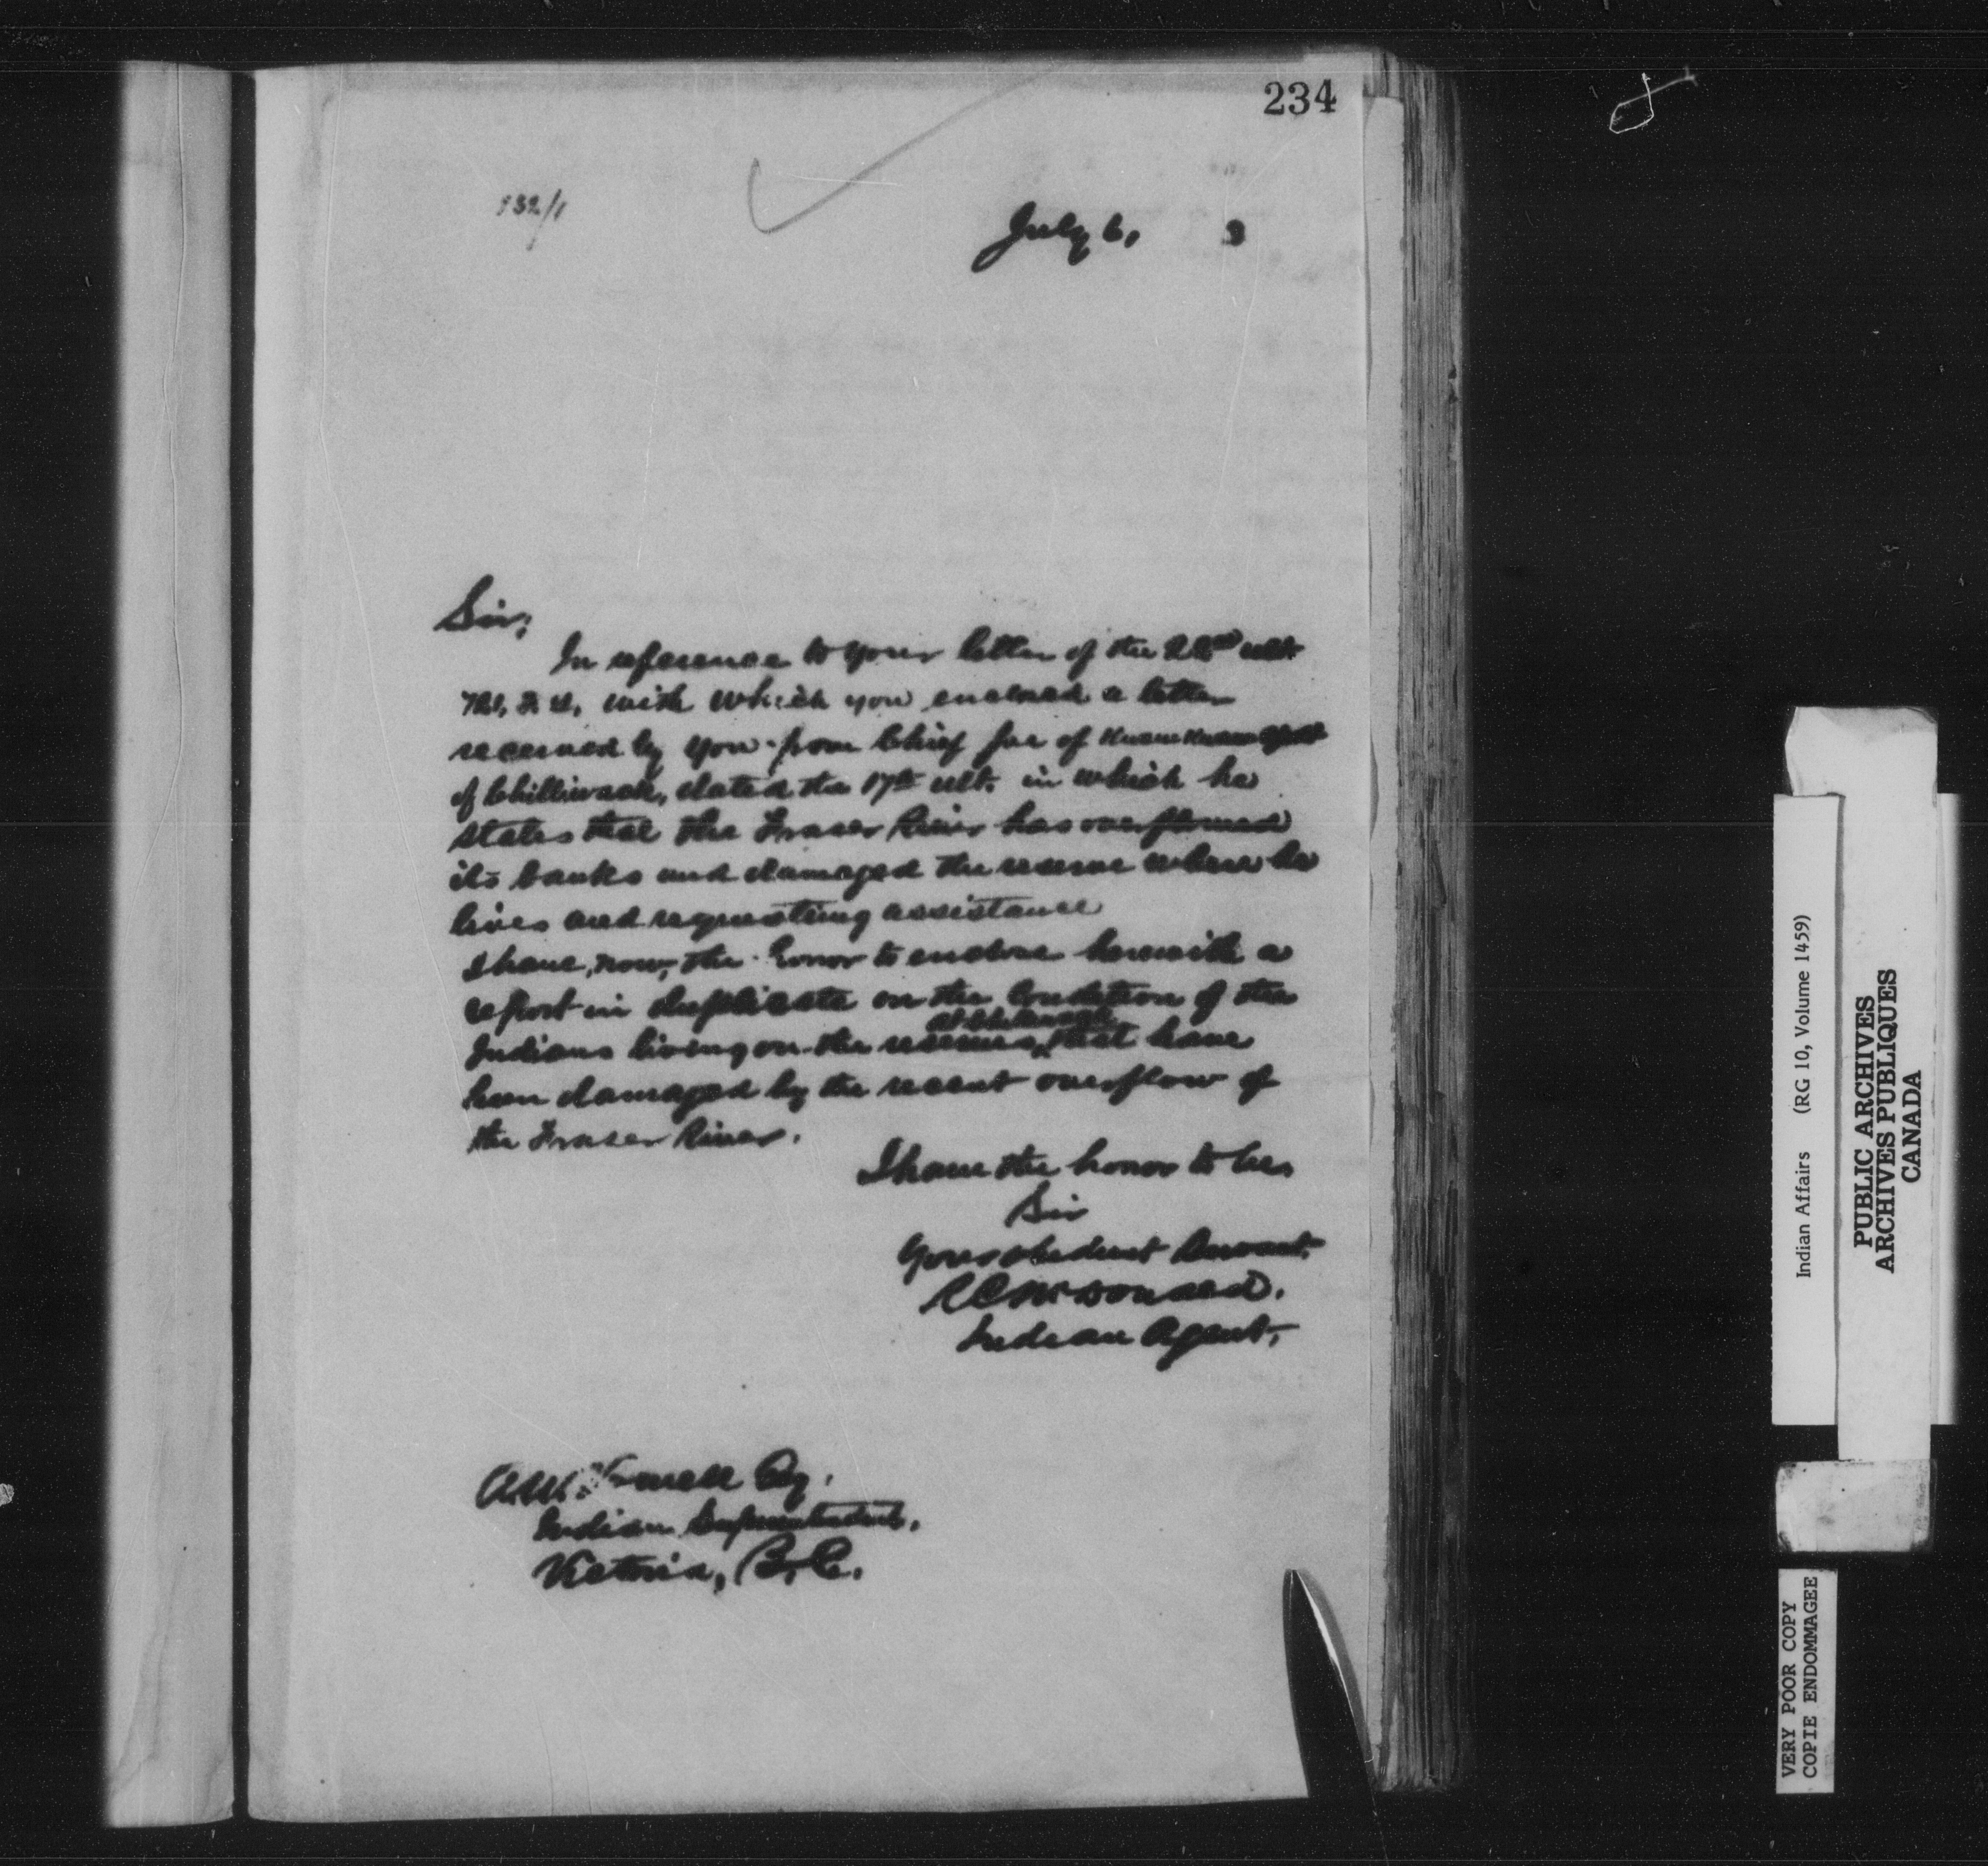 234
132/1
July 6, 3
Sir,
In reference to your letter of the 22nd ult
with which you enclosed a letter
received by you from Chief Joe of
of Chilliwack, dated the 17th ult. in which he
states that the Fraser River has overflowed
its banks and damaged the reserve where he
lives and requesting assistance
I have, now, the honor to enclose herewith a
report in duplicate on the condition of the
Indians living on the reserves, that have
been damaged by the recent overflow of
the Fraser River.
I have the honor to be,
Sir
Your obedient Servant.
Indian Agent.
A.W. Vowell Esq.
Indian Superintendent,
Victoria, B.C.
Indian Affairs (RG 10, Volume 1459)
PUBLIC ARCHIVES
ARCHIVES PUBLIQUES
CANADA
VERY POOR COPY
COPIE ENDOMMAGEE